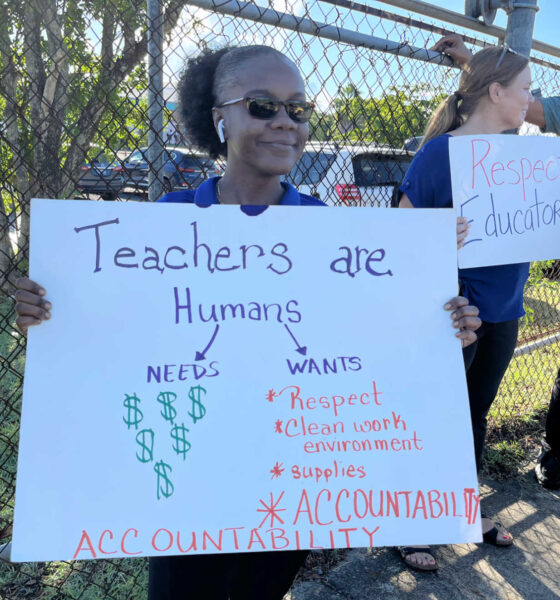 Teachers are
Humans
NEEDS
$ $ $
$ $
$
$
WANTS
* Respect
* Clean work
environment
* Supplies
* ACCOUNTABILITY
ACCOUNTABILITY
Respect
Educator